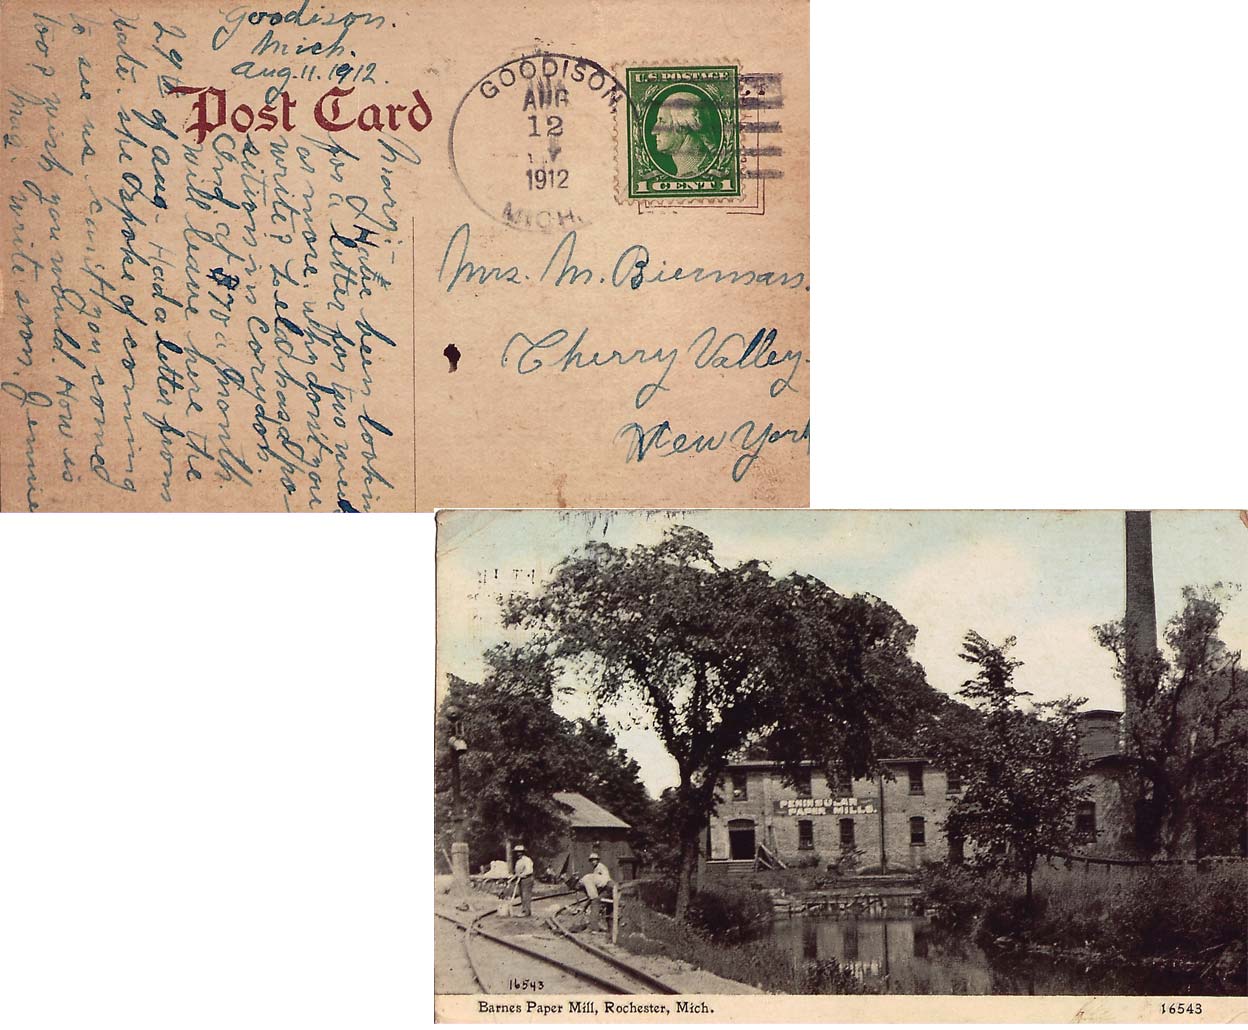 Goodison.
Mich.
Aug. 11. 1912.
Post Card
GOODISON
AUG
12
1912
MICH.
U.S. POSTAGE
1 CENT 1
Mary:-
Have been lookin
for a letter for two weeks
or more. why don't you
write? Zelda has a po-
sition in Corydon
and of $70 a month.
Will leave here the
29th of Aug. Had a letter from
Kate. she spoke of coming
to see us. can't you come
too? wish you would. How is
Mag. Write soon. Jennie
Mrs. M. Bierman.
Cherry Valley.
New York
PENINSULAR
PAPER MILLS.
16543
Barnes Paper Mill, Rochester, Mich.
16543